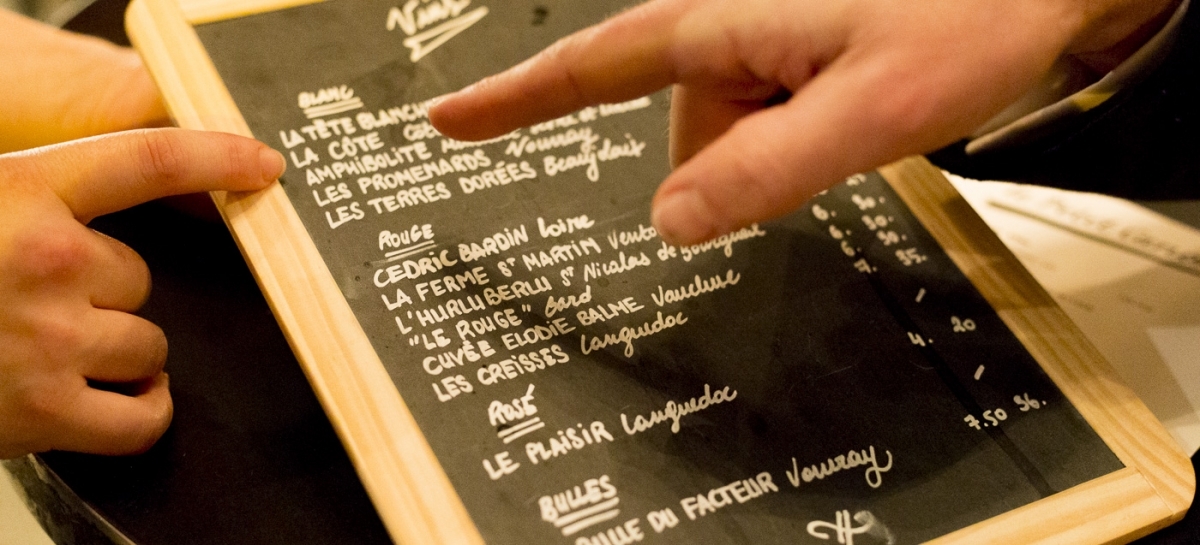 Vins
BLANC
LA TÊTE BLANCHE
LA CÔTE
AMPHIBOLITE
LES PROMENARDS Vouvray
LES TERRES DORÉES Beaujolais
ROUGE
CEDRIC BARDIN Loire
LA FERME St MARTIN
L'HURLUBERLU St Nicolas de Bourgueil
"LE ROUGE" Gard
CUVÉE ELODIE BALME Vaucluse
LES CREISSES Languedoc
6. 30.
6. 30.
6. 30.
7. 35.
ROSÉ
LE PLAISIR Languedoc 4. 20
BULLES
BULLE DU FACTEUR Vouvray 7.50 36.